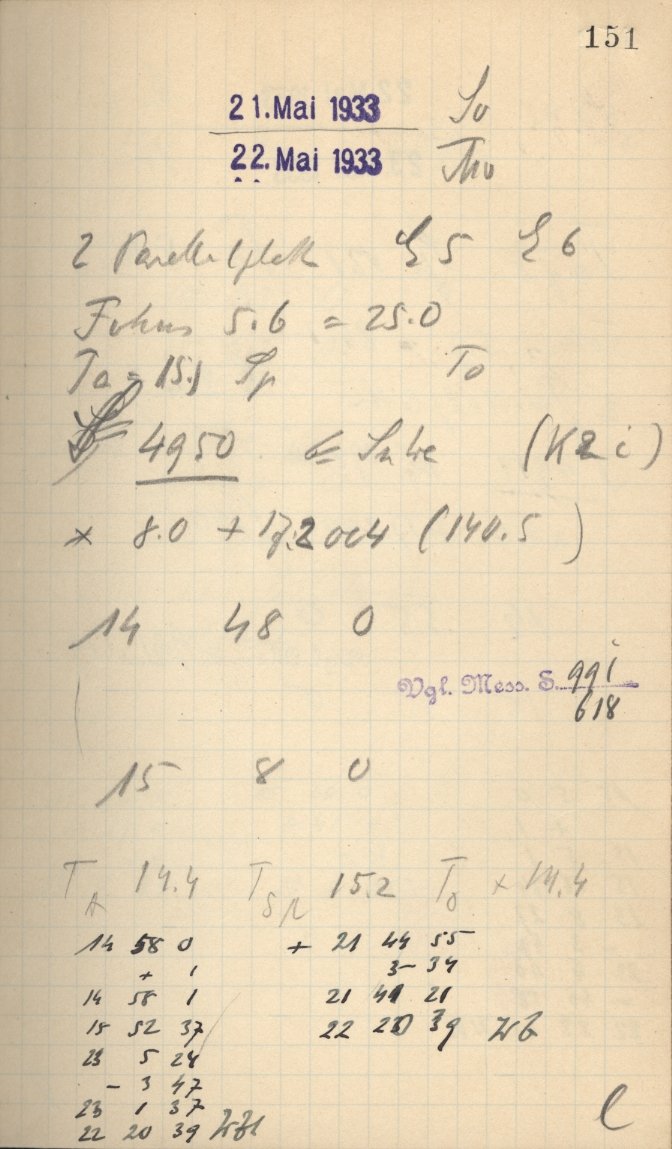 151
21. Mai 1933 So
22. Mai 1933 Mo
2 5 6
Fokus 5.6 = 25.0
Ta = 15.1 Sp To
4950
× 8.0 + 17.2 (140.5)
14 48 0
Vgl. Mess. S. 991
618
15 8 0
TA 14.4 TSp 15.2 To + 14.4
14 58 0 + 21 44 55
+ 1 3- 34
14 58 1 21 41 21
15 52 37 22 20 39
23 5 24
- 3 47
23 1 37
22 20 39